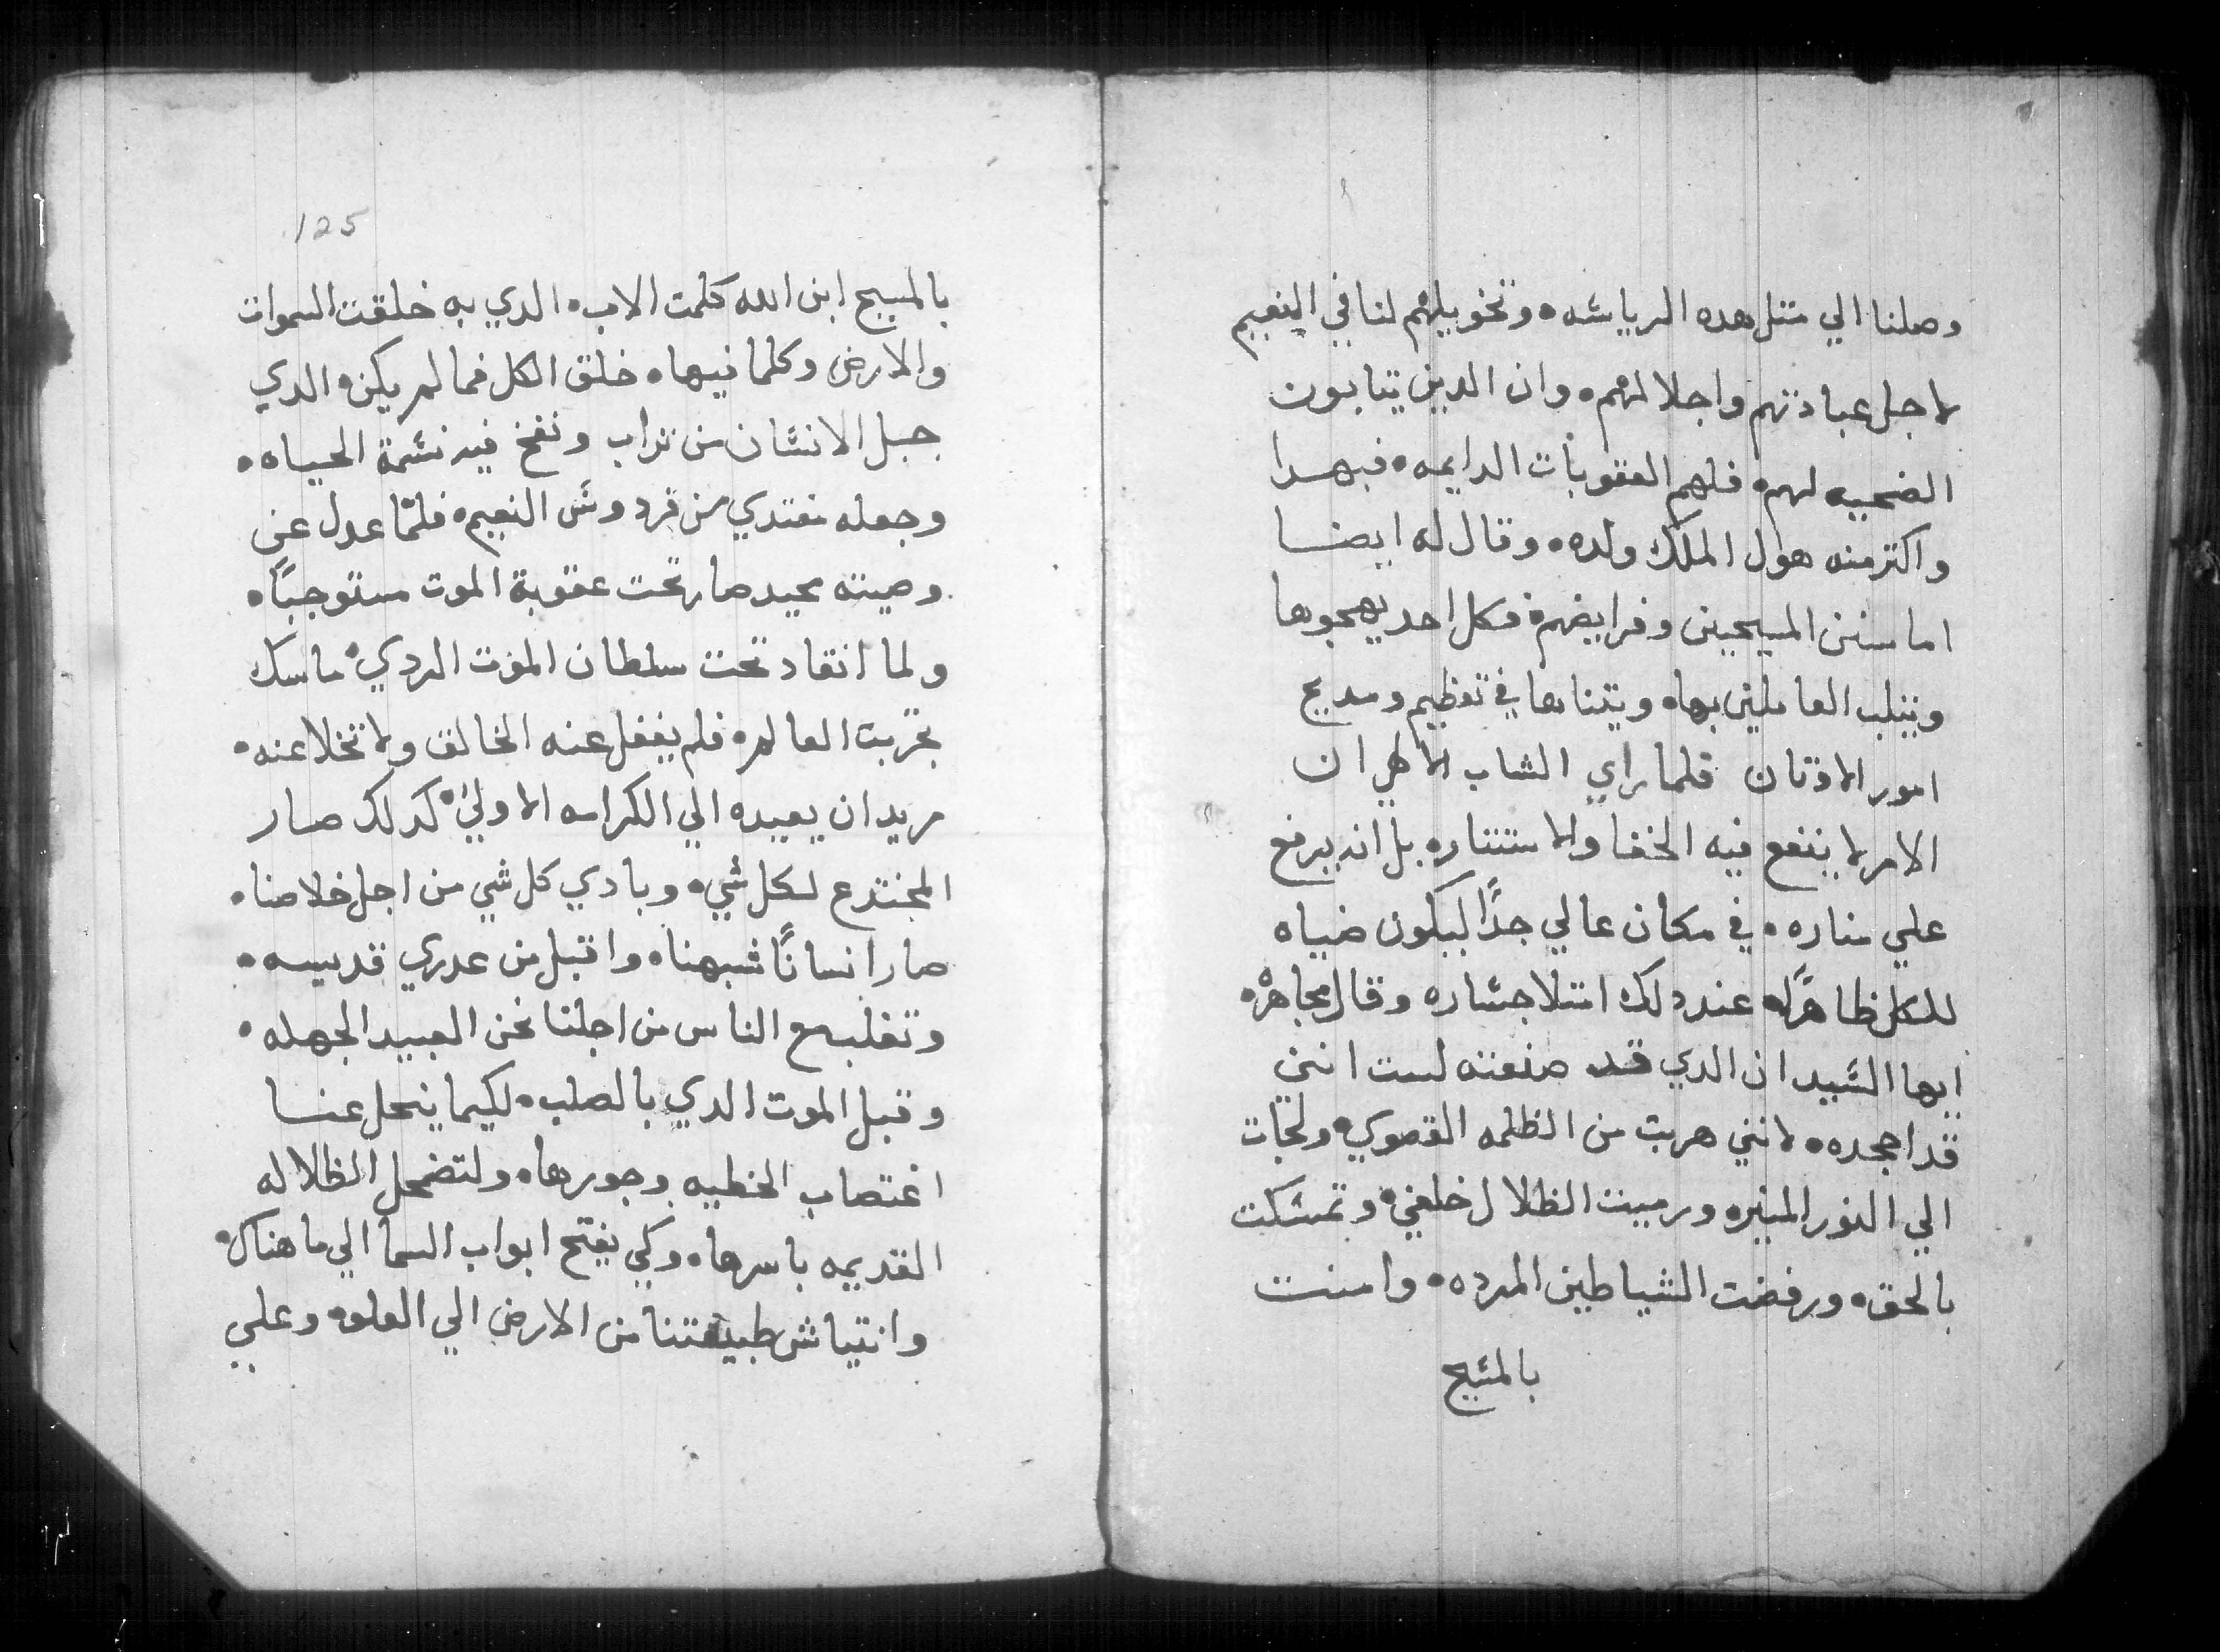 وصلنا الي متل هده الرياسه • وتخويلهم لنا في النعيم
لاجل عبادتهم واجلالهم • وان الدين يتابون
الضحيه لهم • فلهم العقوبات الدايمه • فبهدا
واكتر منه هول الملك ولده • وقال له ايضا
اما سنن المسيحيين وفرايضهم • فكل احد يهجوها
ويتلب العاملين بها • ويتناها في تعظيم ومديح
امور الاوتان فلما راي الشاب الالهي ان
الامر لا ينفع فيه الخفا والاستتاره بل انه يرفع
علي مناره • في مكان عالي جدًا ليكون ضياه
للكل ظاهرًا • عند دلك امتلا جساره وقال مجاهرٌه
ايها السيد ان الدي قد صنعته لست انني
قد اجحده • لانني هربت من الظلمه القصوي • ولجات
الي النور المنيره ورميت الظلال خلفي • وتمسكت
بالحق • ورفضت الشياطين المرده • وامنت
بالمسيح
125
بالمسيح ابن الله كلمت الاب • الدي به خلقت السموات
والارض وكلما فيها • خلق الكل فما لم يكن • الدي
جبل الانسان من تراب ونفخ فيه نسمة الحياه •
وجعله مغتدي من فردوس النعيم • فلمّا عدل عن
وصيته بحيد صار تحت عقوبة الموت مستوجبًا •
ولما انقاد تحت سلطان الموت الردي • ماسك
بحربت العالم • فلم يغفل عنه الخالق ولا تخلا عنه •
مريد ان يعيده الي الكرامه الاولي • كدلك صار
المخترع لكل شي • وبادي كل شي من اجل خلاصنا •
صار انسانًا شبهنا • واقبل من عدري قديسه •
وتقلب مع الناس من اجلنا نحن العبيد الجهله •
وقبل الموت الدي بالصلب • لكيما ينحل عنا
اغتصاب الخطيه وجورها • ولتضمحل الظلاله
القديمه باسرها • وكي يفتح ابواب السما الي ما هناك •
وانتياش طبيعتنا من الارض الي العلو • وعلي